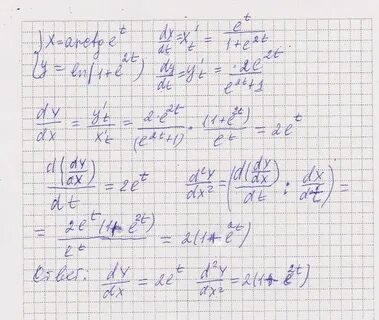 { x = arctg e^t   dx/dt = x't = e^t / (1+e^2t)
{ y = ln(1+e^2t)   dy/dt = y't = 2e^2t / (e^2t+1)
dy/dx = y't / x't = 2·e^2t / (e^2t+1) · (1+e^2t) / e^t = 2e^t
d(dy/dx) / dt = 2e^t   d²y/dx² = (d(dy/dx) / dt : dx/dt) =
= 2e^t(1+e^2t) / e^t = 2(1+e^2t)
Ответ: dy/dx = 2e^t   d²y/dx² = 2(1+e^2t)